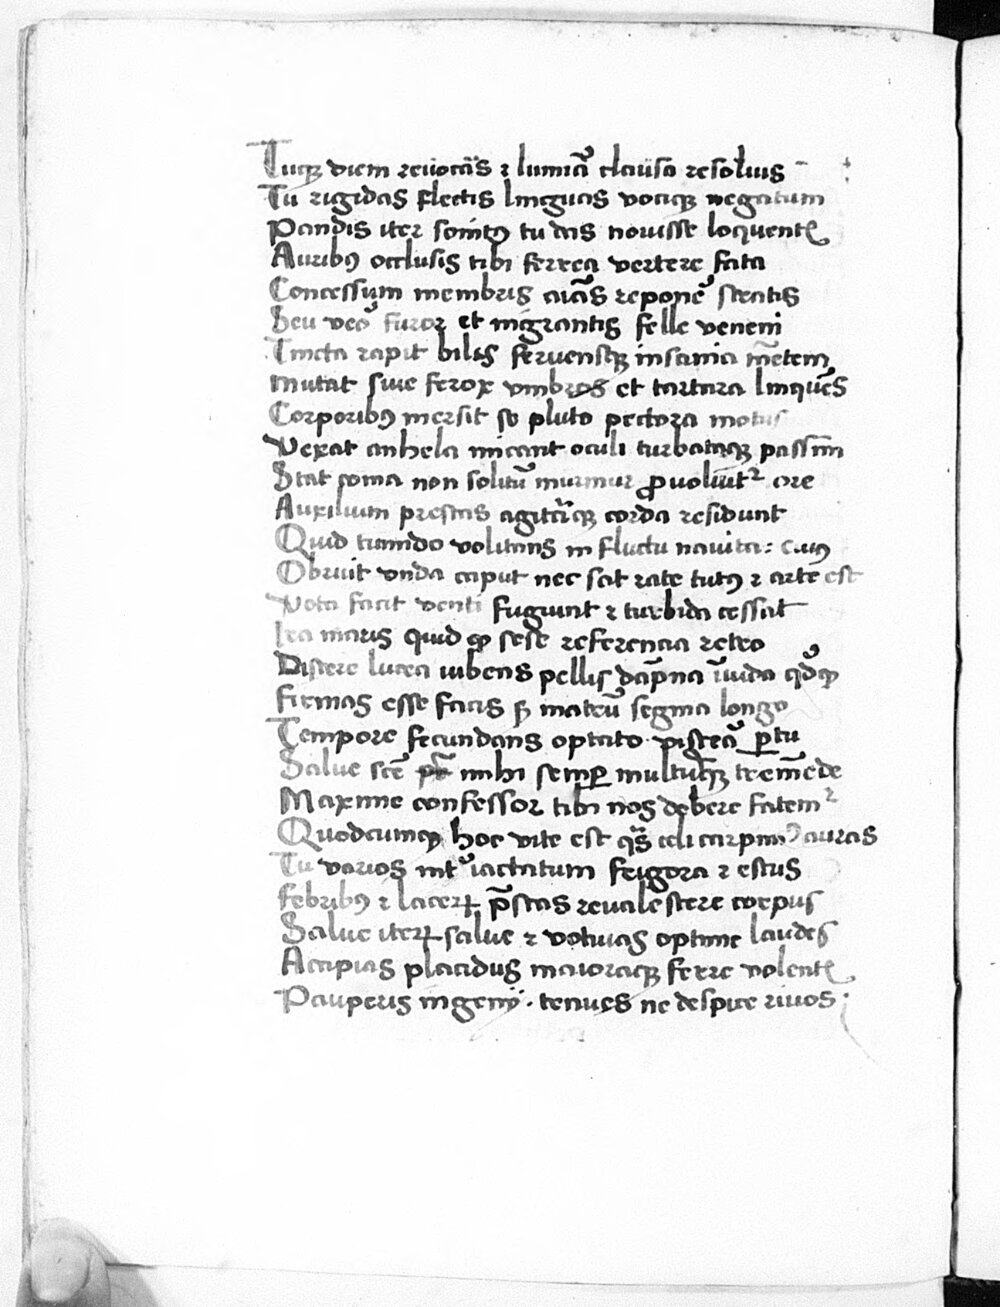 Tuqꝫ diem reuocās ⁊ lumīa clausa resoluis
Tu rigidas flectis linguas vociqꝫ negatum
Pandis iter sonitꝰ tu das nouisse loquentꝭ
Auribꝰ occlusis tibi ferrea vertere fata
Concessum membris aīas reponē͛ sceatis
Seu vecͦ furor et nigrantis felle veneni
Tincta rapit bilis feruensqꝫ insania mētem
mutat siue ferox vmbras et tartara linquēs
Corporibꝰ mersit se pluto pectora motus
Vexat anhela micant oculi turbataqꝫ passim̄
Stat coma non solitū murmur ꝓuoluit᷑ ore
Auxilium prestas agitataqꝫ corda residunt
Quid tumido volitans in fluctu nauita: cuiꝰ
Obruit vnda caput nec sat rate tutꝰ ⁊ arte est
Vota facit venti fugiunt ⁊ turbida cessat
Ira maris quid ꝙ sese referencia retro
Discere lucea iubens pellis dāpna īuida qͦdqꝫ
firmas esse facis ꝑ matrū segma longo
Tempore fecundans optato viscera ꝑtu
Salue scē mihi semꝑ multūqꝫ tremēde
Maxime confessor tibi nos debere fatem᷑
Quodcumqꝫ hoc vite est qͣs celi carpimꝰ auras
Tu varios int͛ iactatum frigora ⁊ estus
febribꝰ ⁊ lacerꝝ p̄stas reualescere corpus
Salue iterꝝ salue ⁊ votiuas optime laudes
Accipias placidus maioraqꝫ ferre volentꝭ
Pauperis ingenij · tenues ne despice riuos ·